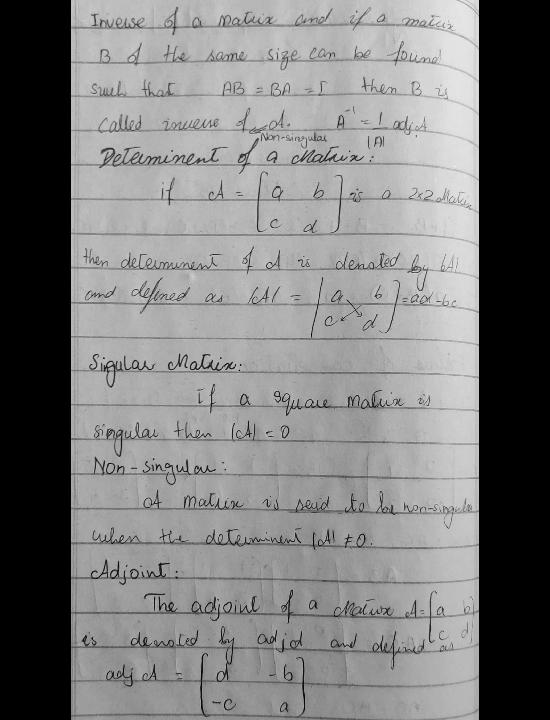 Inverse of a Matrix and if a matrix
B of the same size can be found
such that AB = BA = I then B is
called inverse of A. A⁻¹ = 1/|A| adj A
Non-singular
Determinent of a Matrix:
if A = [a b
c d] is a 2x2 Matrix
then determinent of A is denoted by |A|
and defined as |A| = |a b
c d| = ad - bc
Sigular Matrix:
if a square matrix is
singular then |A| = 0
Non-singular:
A matrix is said to be non-singular
when the determinent |A| ≠ 0.
Adjoint:
The adjoint of a Matrix A = [a b
c d]
is denoted by adj A and defined as
adj A = [d -b
-c a]